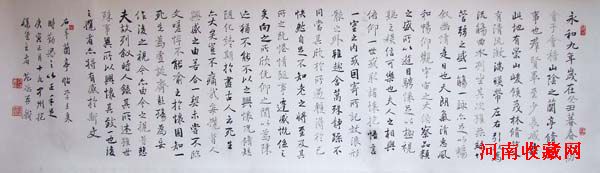 永和九年歲在癸丑暮春之初
會于會稽山陰之蘭亭脩禊
事也群賢畢至少長咸集
此地有崇山峻領茂林脩竹
又有清流激湍映帶左右引以為
流觴曲水列坐其次雖無絲竹
管弦之盛一觴一詠亦足以暢
敘幽情是日也天朗氣清惠風
和暢仰觀宇宙之大俯察品類
之盛所以遊目騁懷足以極視
聽之娛信可樂也夫人之相與
俯仰一世或取諸懷抱悟言
一室之內或因寄所託放浪形
骸之外雖趣舍萬殊靜躁不
同當其欣於所遇暫得於己
快然自足不知老之將至及其
所之既惓情隨事遷感慨係之
矣向之所欣俛仰之間以為陳
迹猶不能不以之興懷況脩短
隨化終期於盡古人云死生
亦大矣豈不痛哉每攬昔人
興感之由若合一契未嘗不臨
文嗟悼不能喻之於懷固知一
死生為虛誕齊彭殤為妄
作後之視今亦由今之視昔悲
夫故列敘時人錄其所述雖世
殊事異所以興懷其致一也後
之攬者亦將有感於斯文
河南收藏网